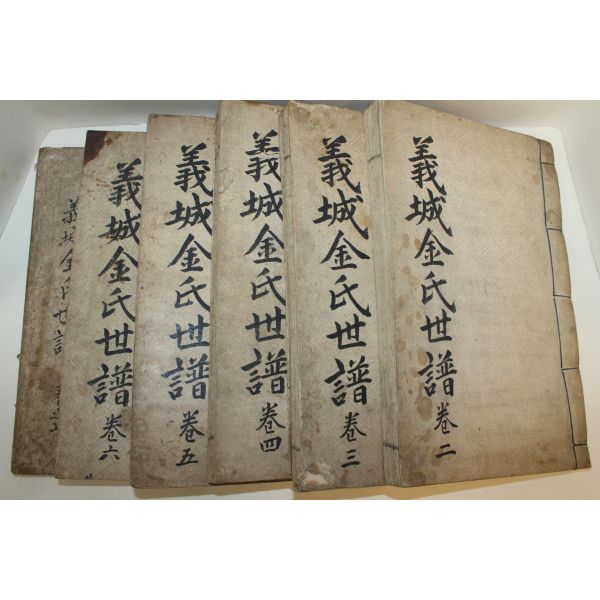 義城金氏世譜 卷二
義城金氏世譜 卷三
義城金氏世譜 卷四
義城金氏世譜 卷五
義城金氏世譜 卷六
義城金氏世譜